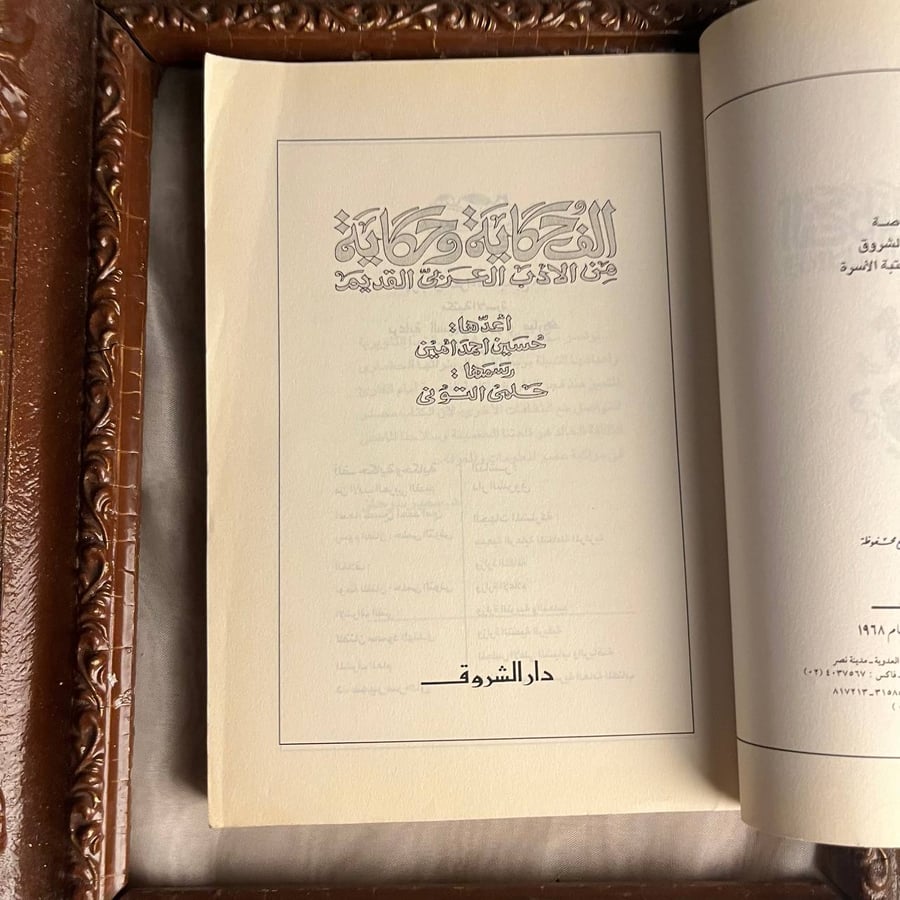 ألف حكاية وحكاية
من الأدب العربى القديم
أعدّها:
حسين أحمد أمين
رسمها:
حلمى التونى
دار الشروق
الشروق
تبة الأسرة
محفوظة
ام ١٩٦٨
العدوية - مدينة نصر
فاكس : ٤٠٣٧٥٦٧ (٠٢)
٨١٧٢١٣-٣١٥٨٥